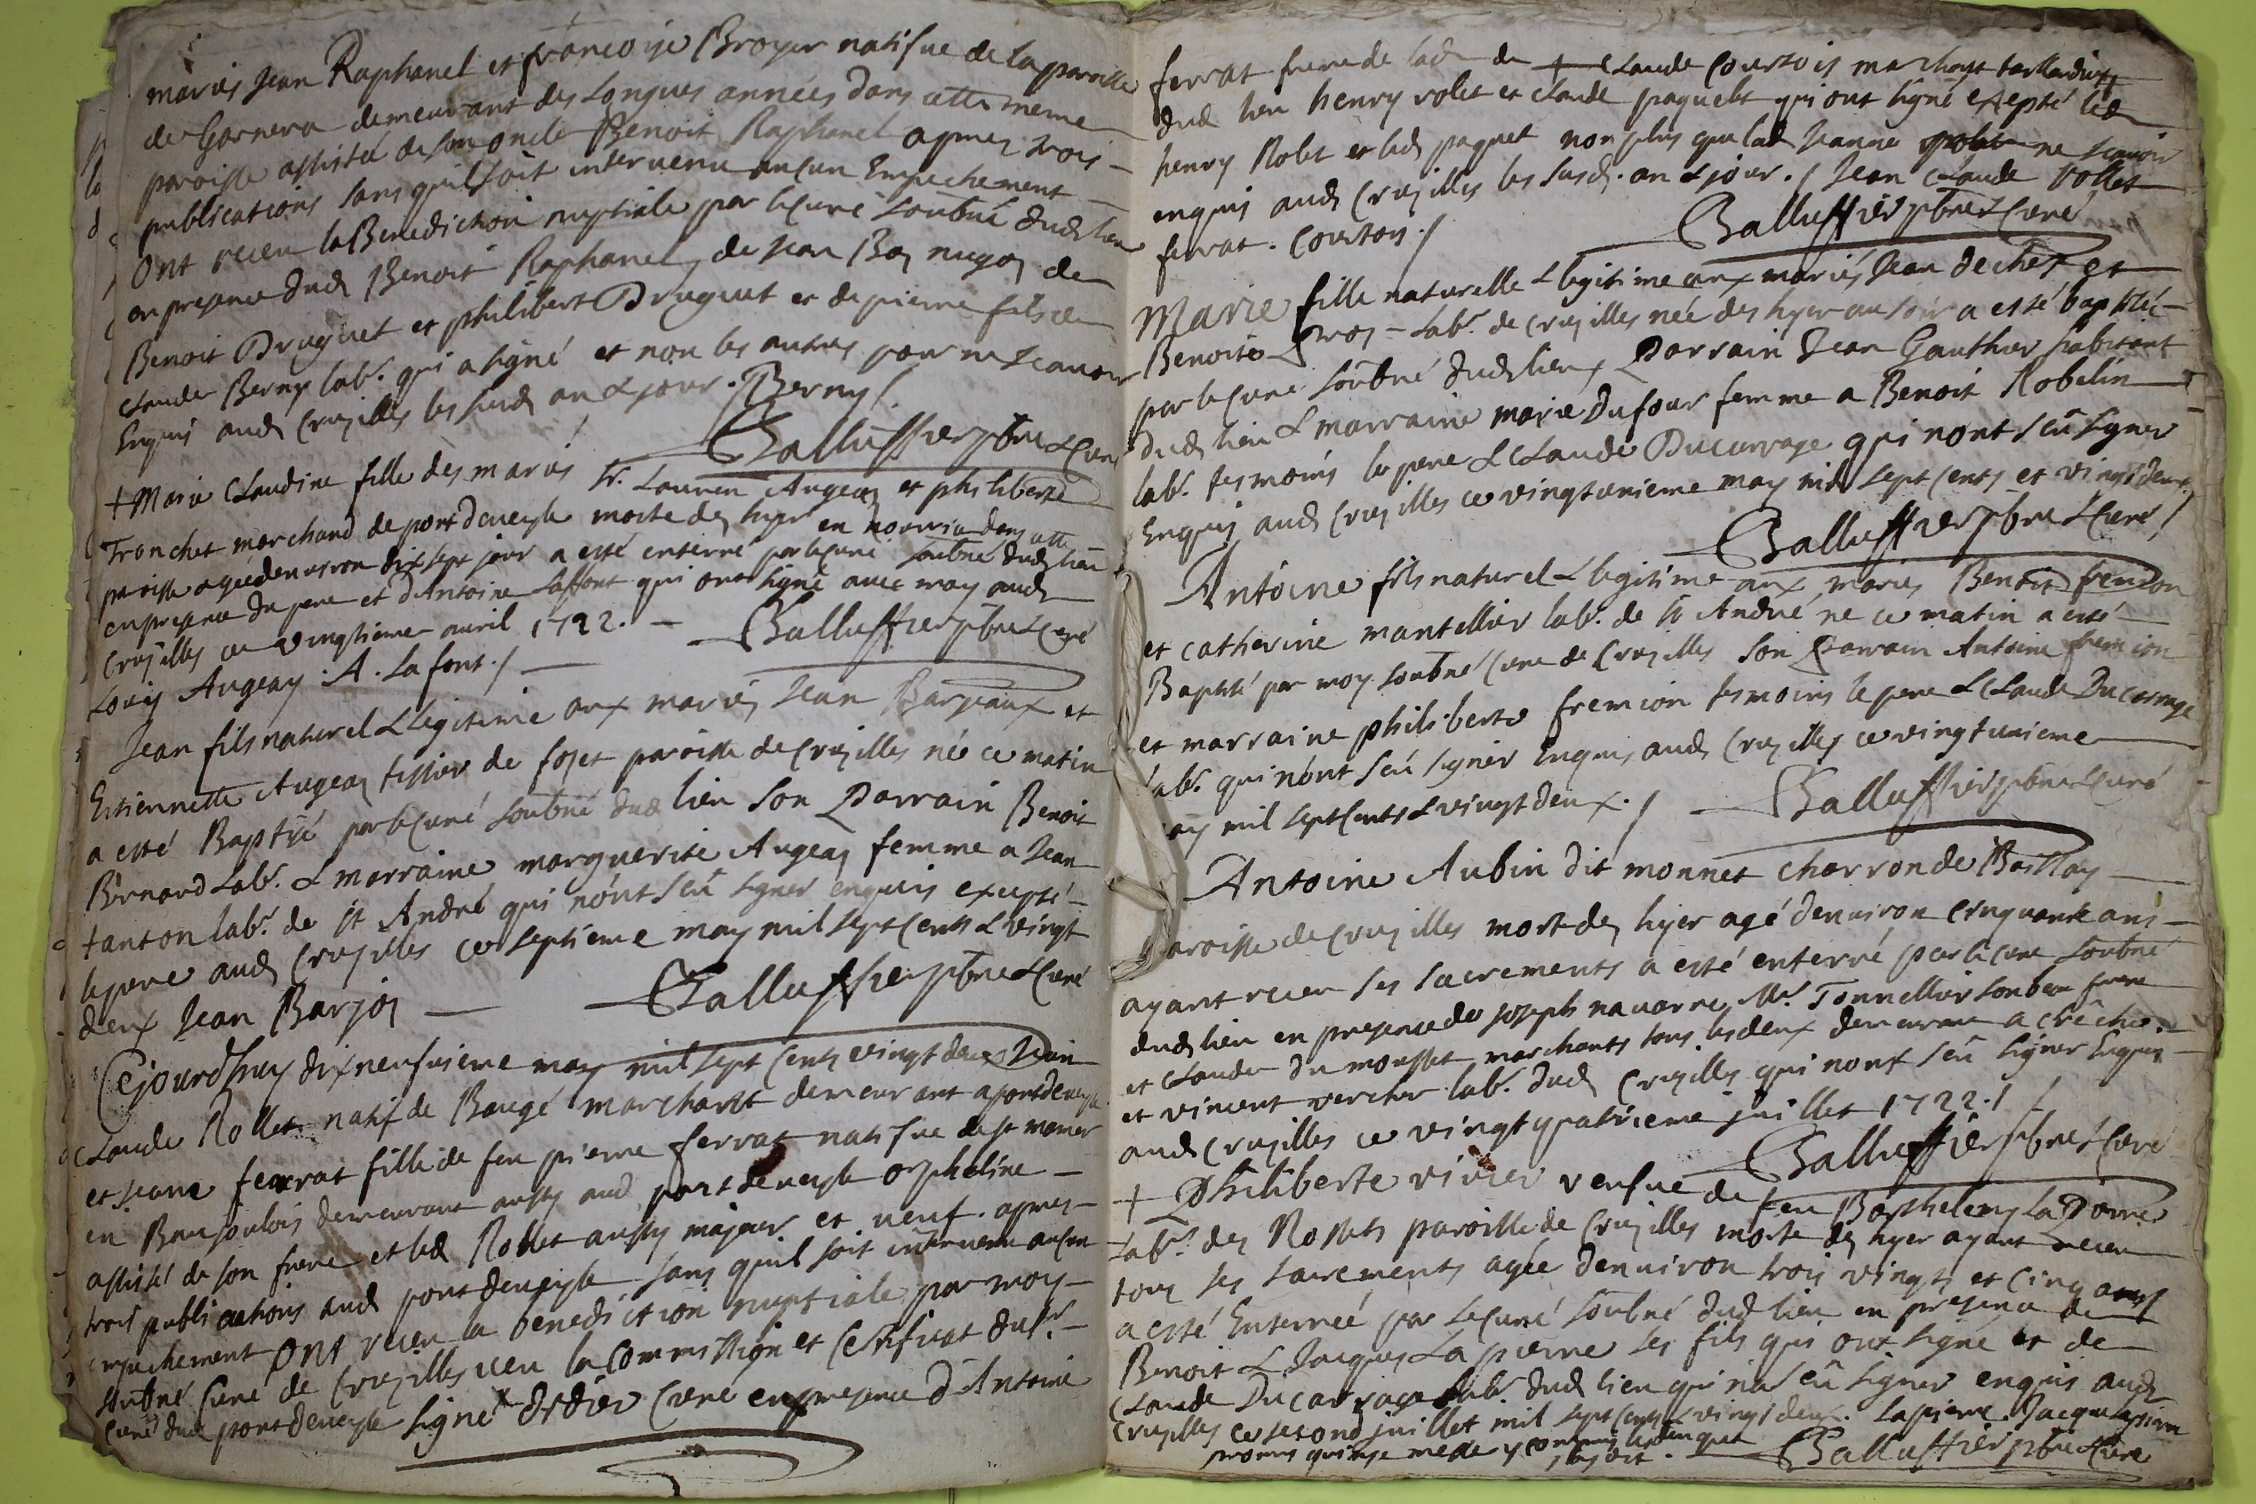 mariés Jean Raphanel et françoise Broyer natifue de la paroisse
de Garnera demeurant des Longues années dans cette meme
paroisse assisté de son oncle Benoit Raphanel apres trois
publications sans quil soit intervenu aucun Empechement
Ont receu la Benediction nuptiale par le curé soubné dud lieu
en presence dud Benoit Raphanel, de Jean de
Benoit Druguet et philibert Druguet et de pierre fils de
Claude Berny lab.r qui a signé et non les autres pour ne scavoir
Enquis aud Cruzilles les susd an & jour. Berny
Galluffier pbre & curé
+ Marie Claudine fille des mariés Sr. Augeay et philiberte
Tronchet marchand de pontdeveyle morte des hyer en nourrice dans cette
paroisse agée denviron dix sept jour a esté enterré par le curé soubné dud lieu
en presence du pere et d'Antoine Laffont qui ont signé avec moy aud
Cruzilles ce vingtieme avril 1722. Galluffier pbre & curé
Louis Augeay. A. Lafont./
Jean fils naturel & legitime aux mariés Jean Barjeaux et
Estiennette Augeay tissier de fozet paroisse de Cruzilles né ce matin
a esté Baptisé par le curé soubné dud lieu Son Parrain Benoit
Bernard Lab.r & marraine marguerite Augeay femme a Jean
tanton lab.r de St André qui n'ont sçû signer enquis excepté
le pere aud Cruzilles ce septieme may mil sept cents & vingt
deux Jean Barjoz Galluffier pbre & curé
Cejourdhuy dix neufuieme may mil sept cents vingt deux Jean
Claude Rollet natif de Baugé marchant demeurant a pontdeveyle
et Jeane ferrat fille de feu pierre ferrat natifue de St mamer
en Baujoulois demeurant aussy aud pontdeveyle orpheline
assisté de son frere et led Rollet aussy majeur et veuf. apres
trois publications aud pontdeveyle sans quil soit intervenu aucun
empechement Ont receu la benediction nuptiale par moy
soubné Curé de Cruzilles veu la Commission et certificat du Sr
Curé dud pontdeveyle signé Didier Curé en presence d'Antoine
ferrat frere de lad de Claude Courtois marchant taillandier
dud lieu henry rolet et claude paquelet qui ont signé excepté led
henry Rolet et led paquet non plus que lad Jeanne ne scavoir
enquis aud Cruzilles les susd. an & jour./ Jean Claude Rollet
ferrat. Courtois./ Galluffier pbre & curé
Marie fille naturelle & legitime aux mariés Jean dechet et
Benoite Gros Lab.r de Cruzilles née des hyer au soir a esté baptisée
par le curé soubné dud lieu Parrain Jean Gauthier habitant
dud lieu & marraine marie Dufour femme a Benoit Robelin
lab.r tesmoins le pere & Claude Ducarrage qui n'ont sçû signer
Enquis aud Cruzilles ce vingtunieme may mil sept cents et vingt deux
Galluffier pbre & curé/
Antoine fils naturel & legitime aux mariés Benoit fremion
et catherine mantellier lab.r de St André né ce matin a esté
Baptisé par moy soubné Curé de Cruzilles Son Parrain Antoine fremion
et marraine philiberte fremion tesmoins le pere & Claude Ducarrage
lab.r qui n'ont sçû signer Enquis aud Cruzilles ce vingtunieme
may mil sept cents & vingt deux./ Galluffier pbre & curé
Antoine Aubin dit monnet charron de
paroisse de Cruzilles mort des hyer agé denviron cinquante ans
ayant receu ses sacrements a esté enterré par le curé soubné
dud lieu en presence de Joseph navarre, Mr. Tonnellier son beau frere
et Claude du mousset marchants tous les deux demeurant a crêche
et vincent vercher lab.r dud Cruzilles qui n'ont sçû signer Enquis
aud Cruzilles ce vingtquatrieme juillet 1722./
Galluffier pbre & curé
+ Philiberte vivier veufue de feu Barthelemy La Pierre
Lab.r des paroisse de Cruzilles morte des hyer ayant receu
tous ses sacrements agée denviron trois vingts et cinq ans
a esté Enterrée par le curé soubné dud lieu en presence de
Benoit & Jacques Lapierre ses fils qui ont signé et de
Claude Ducarrage lab.r dud lieu qui n'a sçû signer enquis aud
Cruzilles ce second juillet mil sept cents & vingt deux. Lapierre. Jacque Lapierre
Galluffier pbre & curé